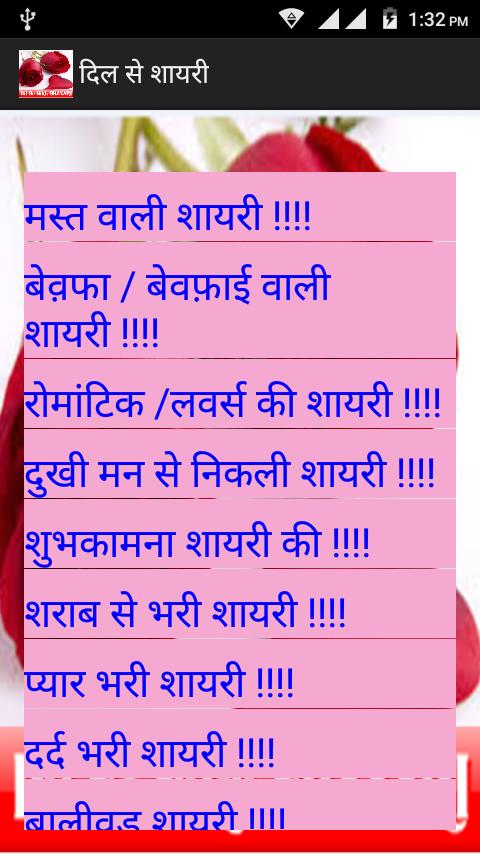 1:32 PM
दिल से शायरी
मस्त वाली शायरी !!!!
बेव़फा / बेवफ़ाई वाली
शायरी !!!!
रोमांटिक /लवर्स की शायरी !!!!
दुखी मन से निकली शायरी !!!!
शुभकामना शायरी की !!!!
शराब से भरी शायरी !!!!
प्यार भरी शायरी !!!!
दर्द भरी शायरी !!!!
बालीवुड शायरी !!!!